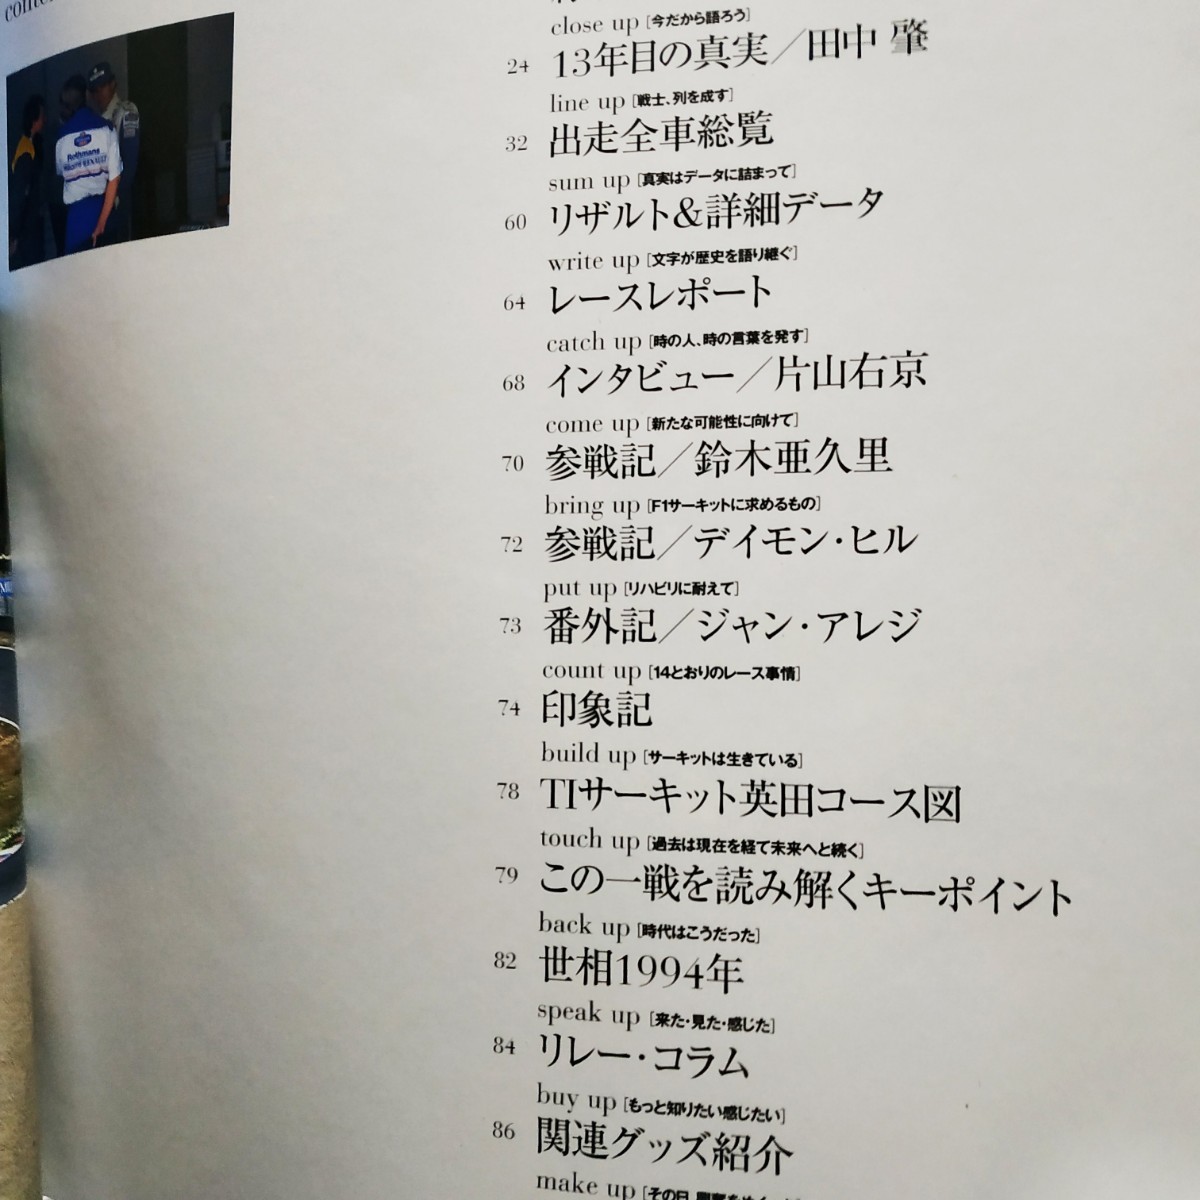 close up [今だから語ろう]
24 13年目の真実／田中 肇
line up [戦士、列を成す]
32 出走全車総覧
sum up [真実はデータに詰まって]
60 リザルト&詳細データ
write up [文字が歴史を語り継ぐ]
64 レースレポート
catch up [時の人、時の言葉を発す]
68 インタビュー／片山右京
come up [新たな可能性に向けて]
70 参戦記／鈴木亜久里
bring up [F1サーキットに求めるもの]
72 参戦記／デイモン・ヒル
put up [リハビリに耐えて]
73 番外記／ジャン・アレジ
count up [14とおりのレース事情]
74 印象記
build up [サーキットは生きている]
78 TIサーキット英田コース図
touch up [過去は現在を経て未来へと続く]
79 この一戦を読み解くキーポイント
back up [時代はこうだった]
82 世相1994年
speak up [来た・見た・感じた]
84 リレー・コラム
buy up [もっと知りたい感じたい]
86 関連グッズ紹介
make up [その日
Rothmans